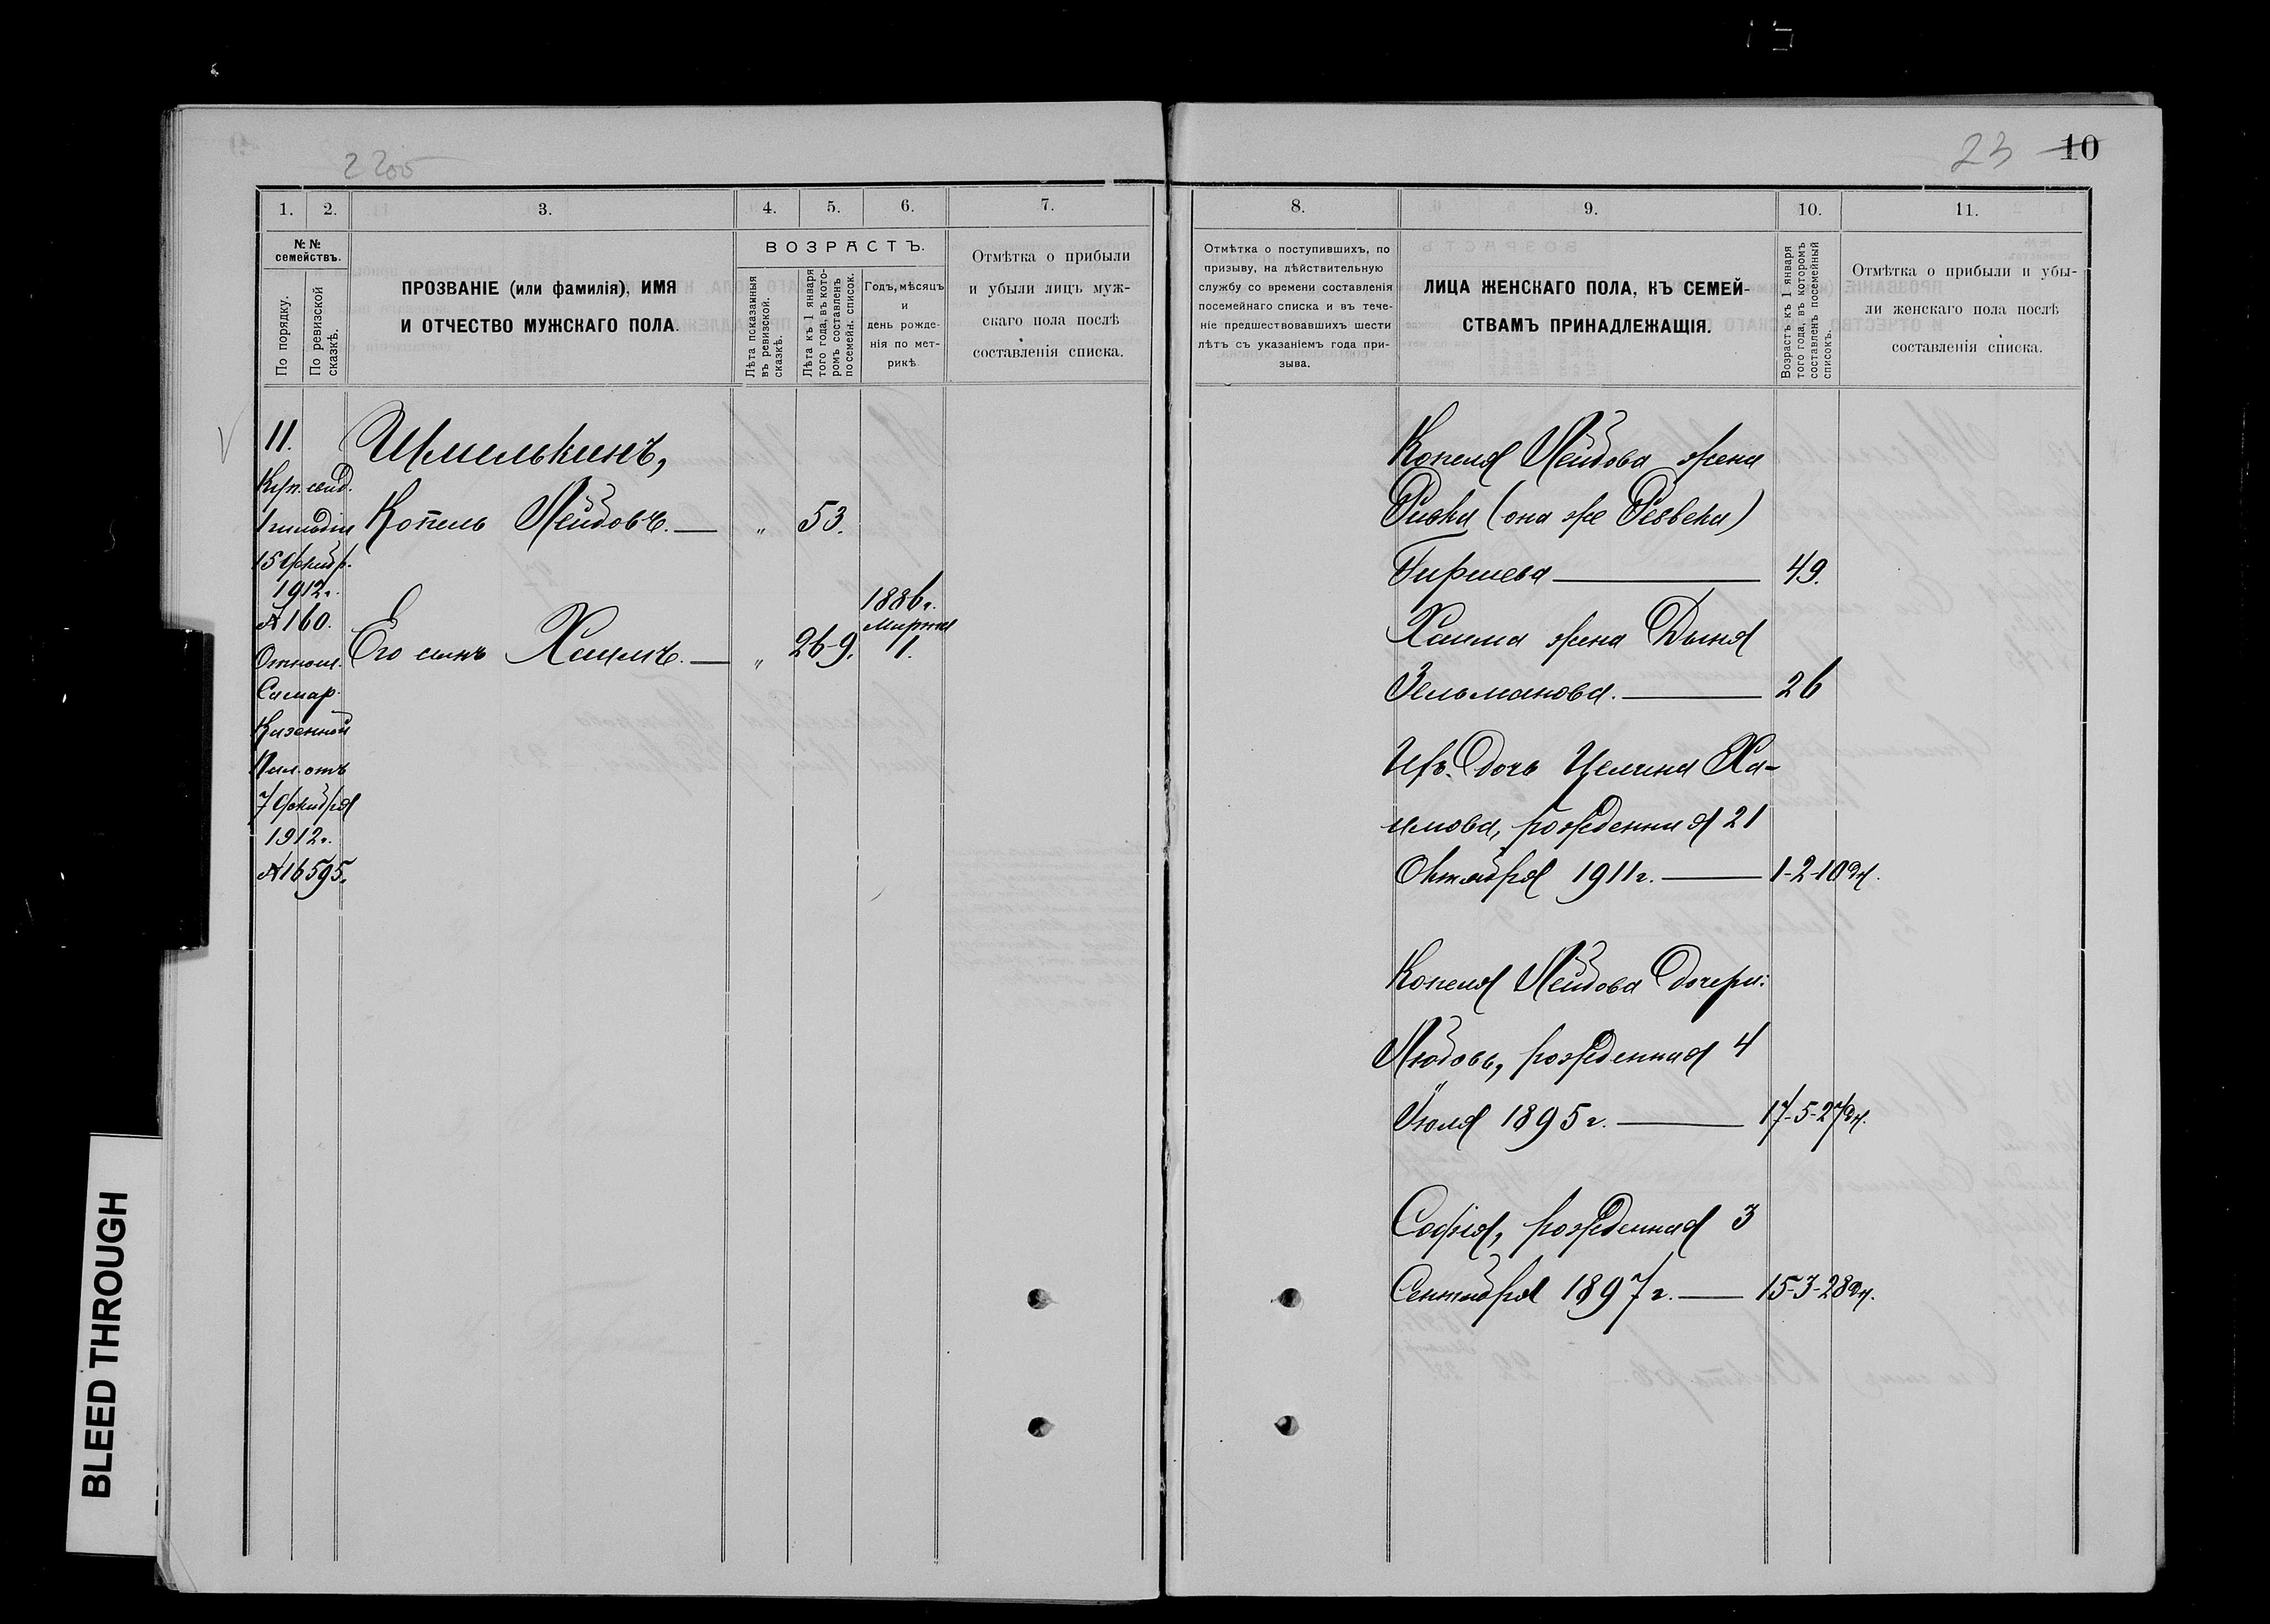 2200
23 10
1. 2. 3. 4. 5. 6. 7.
№ № семействъ.
По порядку.
По ревизской сказкѣ.
ПРОЗВАНІЕ (или фамилія), ИМЯ
И ОТЧЕСТВО МУЖСКАГО ПОЛА.
ВОЗРАСТЪ.
Лѣта показамныя въ ревизской. сказкѣ.
Лѣта къ 1 января того года, въ кото-ромъ составленъ посемейн. список.
Годъ, мѣсяцъ
и
день рожде-
нія по мет-
рикѣ
Отмѣтка о прибыли
и убыли лицъ муж-
скаго пола послѣ
составленія списка.
11.
Куп. свид.
1 гильдіи
15 Декабр.
1912г.
№ 160.
Отнош.
Самар.
Казенной
Пал. отъ
7 Декабря
1912г.
№ 16595.
Шмелькинъ,
Копель Лейбовъ. — „ 53.
Его сынъ Хаимъ. — „ 26-9. 1886г. Марта 1.
8. 9. 10. 11.
Отмѣтка о поступившихъ, по
призыву, на дѣйствительную
службу со времени составленія
посемейнаго списка и въ тече-
ніе предшествовавшихъ шести
лѣтъ съ указаніемъ года при-
зыва.
ЛИЦА ЖЕНСКАГО ПОЛА, КЪ СЕМЕЙ-
СТВАМЪ ПРИНАДЛЕЖАЩІЯ.
Возрастъ къ 1 января
того года, въ которомъ
составленъ посемейный
списокъ.
Отмѣтка о прибыли и убы-
ли женскаго пола послѣ
составленія списка.
Копеля Лейбова жена
Ривка (она же Реввека)
Гиршева — 49.
Хаима жена Дыня
Зельманова. — 26
Ихъ дочь Целина Ха-
имова, рожденная 21
Октября 1911г. — 1-2-10 дн.
Копеля Лейбова дочери:
Любовь, рожденная 4
Іюля 1895г. — 17-5-27дн.
Софія, рожденная 3
Сентября 1897г. — 15-3-28дн.
BLEED THROUGH